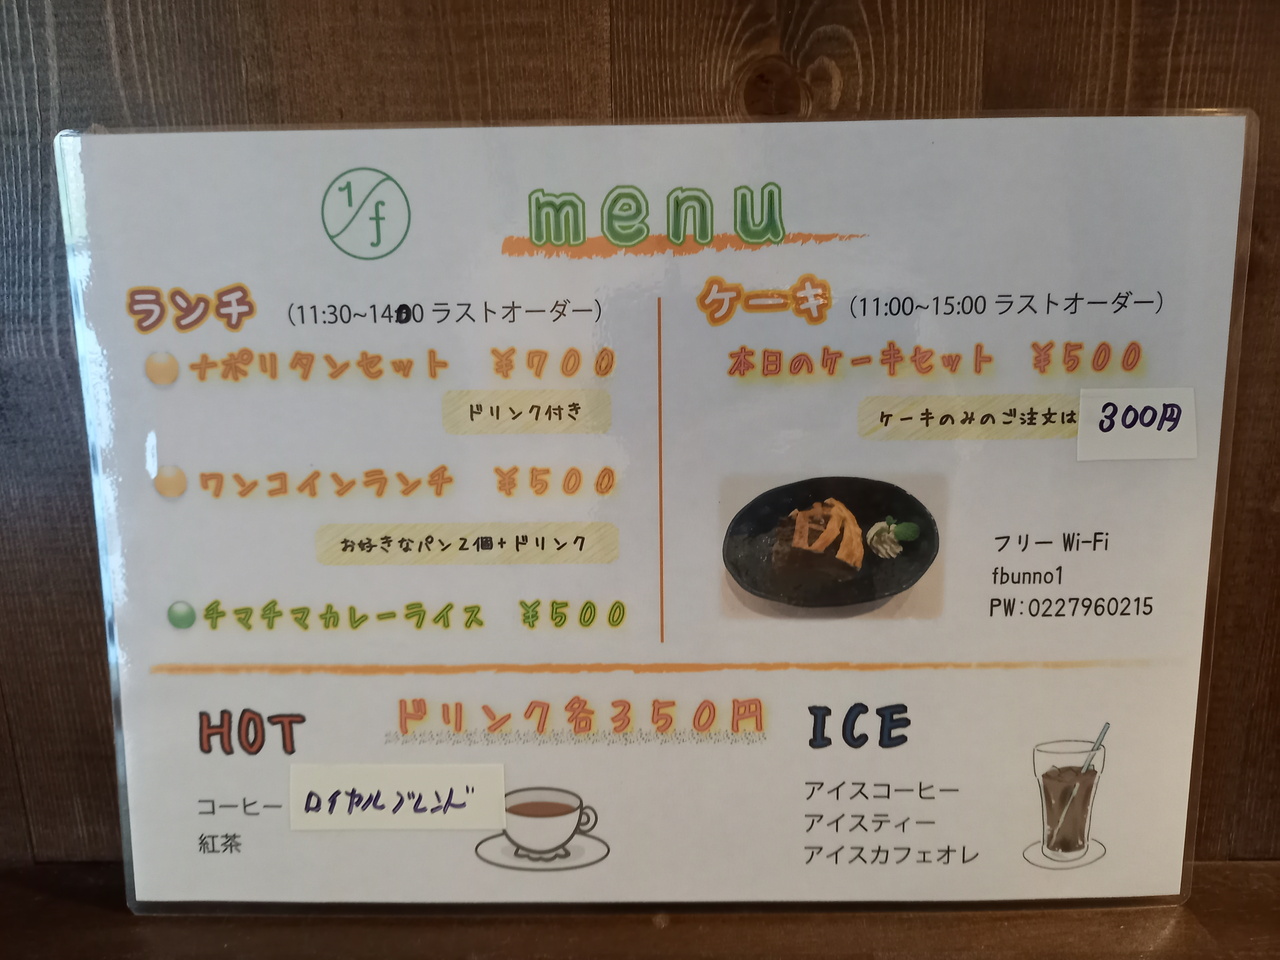 1/f
menu
ランチ (11:30~14:00 ラストオーダー)
ナポリタンセット ¥700
ドリンク付き
ワンコインランチ ¥500
お好きなパン2個+ドリンク
チマチマカレーライス ¥500
ケーキ (11:00~15:00 ラストオーダー)
本日のケーキセット ¥500
ケーキのみのご注文は 300円
フリー Wi-Fi
fbunno1
PW:0227960215
ドリンク各350円
HOT
コーヒー ロイヤルブレンド
紅茶
ICE
アイスコーヒー
アイスティー
アイスカフェオレ